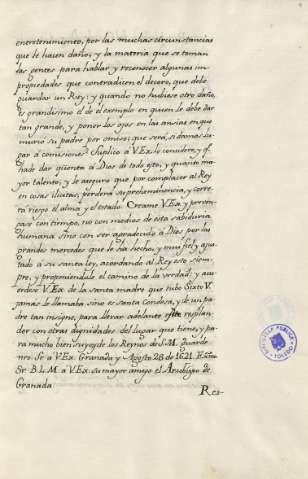 entretenimiento, por las muchas circunstancias
que le hacen daño; y la materia que se toman
las gentes para hablar y recensar algunas im
propiedades que contradicen el decoro, que debe
guardar un Rey: y quando no hubiese otro daño,
es grandisimo el de el exemplo en quien le debe dar
tan grande, y poner los ojos en las ansias en que
murio su padre por omision que seria, si damos lu
gar á comisiones. Suplico á V.Ex. lo considere, y q.e
ha de dar quenta á Dios de todo esto, y quanto ma
yor talento, y le aseguro que por complacer al Rey
en cosas ilicitas, perderá su preheminencia, y corre
rá riesgo el alma y el estado. Creame V.Ex. y
con tiempo, no con medios de esta sabiduria
humana sino con ser agradecido á Dios por las
grandes mercedes que le ha hecho, y muy fiel y
tado á su santa ley, acordando al Rey esto siem
pre, y proponiendole el camino de la verdad: y
V.Ex. de la santa madre que tubo Sixto V.
jamas le llamaba sino es santa Condesa, y de un pa
dre tan insigne, para llevar adelante este resplan
der con otras dignidades del lugar que tiene, y pa
ra mucho bien suyo, y de los Reynos de S.M. Guarde
nro. Sr. á V.Ex. Granada y Agosto 28 de 1621. Exmo
Sr. B.L.M. á V.Ex. su mayor amigo el Arzobispo de
Granada
Res-
BIBLIOTECA PUBLICA
TOLEDO